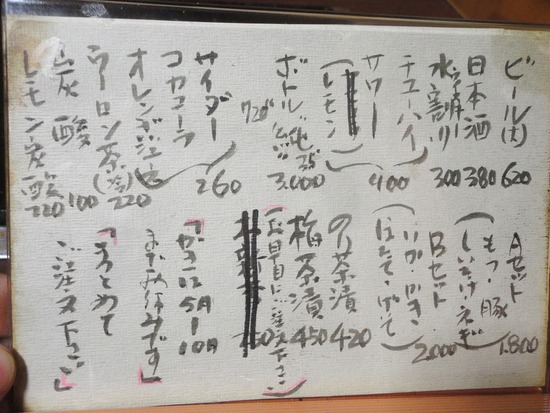 ビール(大) 620
日本酒 380
水割り 300
チューハイ
サワー 400
(レモン
ボトル 純 25° 3,000
720
サイダー
コカコーラ 260
オレンジジュース
ウーロン茶(冷) 220
炭酸 100
レモン炭酸 220
Aセット
もつ・豚
(しいたけ・ネギ) 1,800
Bセット
(いか・かき
ほたて・げそ) 2,000
のり茶漬 420
梅茶漬 450
(お早目にご注文下さい)
「かきは5月〜10月
までお休みです」
「まとめて
ご注文下さい」